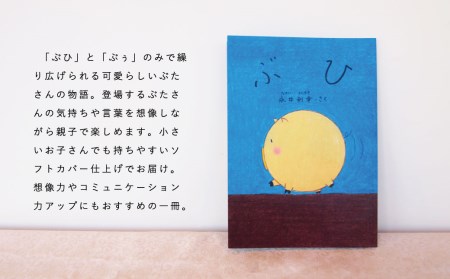 「ぶひ」と「ぷぅ」のみで繰
り広げられる可愛らしいぶた
さんの物語。登場するぶたさ
んの気持ちや言葉を想像しな
がら親子で楽しめます。小さ
いお子さんでも持ちやすいソ
フトカバー仕上げでお届け。
想像力やコミュニケーション
力アップにもおすすめの一冊。
ぶひ